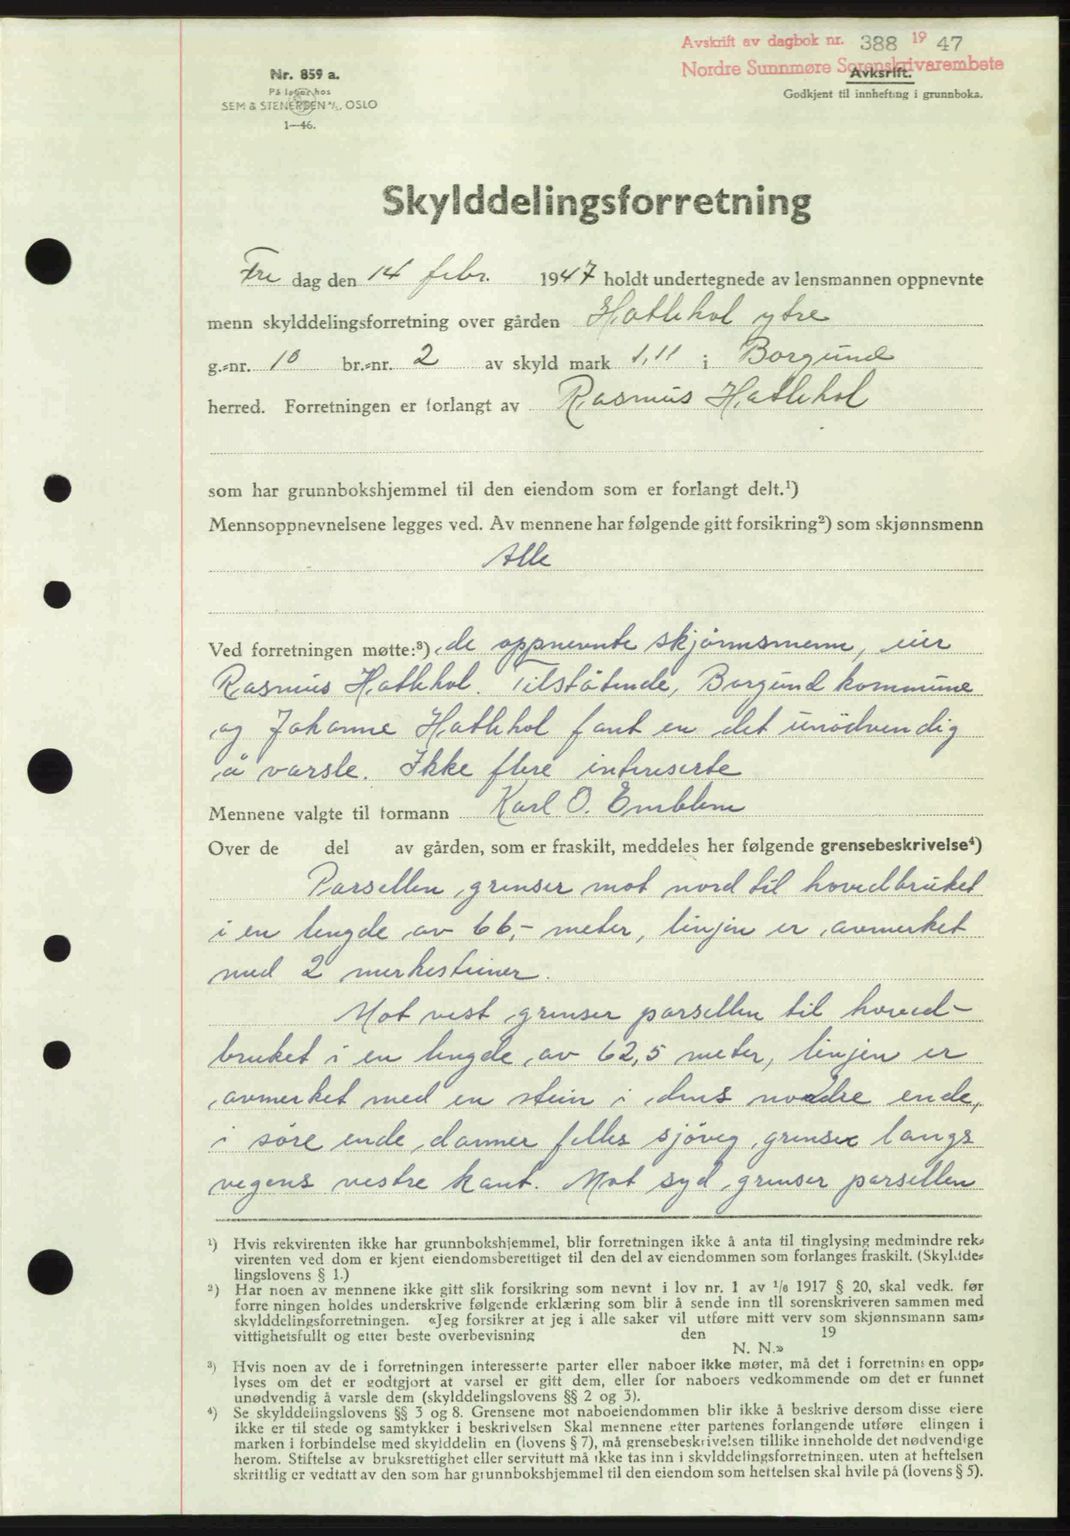 Avskrift av dagbok nr. 388 1947
Nordre Sunnmøre Sorenskrivarembete
Avksrift.
Godkjent til innhefting i grunnboka.
Nr. 859 a.
På lager hos
SEM & STENERSEN A/S, OSLO
1—46.
Skylddelingsforretning
Fre dag den 14 febr. 1947 holdt undertegnede av lensmannen oppnevnte
menn skylddelingsforretning over gården Hatlehol ytre
g.-nr. 10 br.-nr. 2 av skyld mark 1,11 i Borgund
herred. Forretningen er forlangt av Rasmus Hatlehol
som har grunnbokshjemmel til den eiendom som er forlangt delt.¹)
Mennsoppnevnelsene legges ved. Av mennene har følgende gitt forsikring²) som skjønnsmenn
Alle
Ved forretningen møtte:³) de oppnevnte skjönnsmenn, eier
Rasmus Hatlehol. Tilstötende, Borgund kommune
og Johanne Hatlehol fant en det unödvendig
å varsle. Ikke flere intereserte
Mennene valgte til formann Karl O. Emblem
Over de del av gården, som er fraskilt, meddeles her følgende grensebeskrivelse⁴)
Parsellen grenser mot nord til hovedbruket
i en lengde av 66,- meter, linjen er avmerket
med 2 merkesteiner.
Mot vest grenser parsellen til hoved-
bruket i en lengde av 62,5 meter, linjen er
avmerket med en stein i dens nordre ende,
i söre ende danner felles sjöveg grense langs
vegens vestre kant. Mot syd grenser parsellen
¹) Hvis rekvirenten ikke har grunnbokshjemmel, blir forretningen ikke å anta til tinglysing medmindre rek-
virenten ved dom er kjent eiendomsberettiget til den del av eiendommen som forlanges fraskilt. (Skyldde-
lingslovens § 1.)
²) Har noen av mennene ikke gitt slik forsikring som nevnt i lov nr. 1 av 1/6 1917 § 20, skal vedk. før
forretningen holdes underskrive følgende erklæring som blir å sende inn til sorenskriveren sammen med
skylddelingsforretningen. «Jeg forsikrer at jeg i alle saker vil utføre mitt verv som skjønnsmann sam-
vittighetsfullt og etter beste overbevisning den 19
N. N.»
³) Hvis noen av de i forretningen interesserte parter eller naboer ikke møter, må det i forretningen opp-
lyses om det er godtgjort at varsel er gitt dem, eller for naboers vedkommende om det er funnet
unødvendig å varsle dem (skylddelingslovens §§ 2 og 3).
⁴) Se skylddelingslovens §§ 3 og 8. Grensene mot naboeiendommen blir ikke å beskrive dersom disse eiere
ikke er til stede og samtykker i beskrivelsen Skal mennene etter partenes forlangende utføre elingen i
marken i forbindelse med skylddelin en (lovens § 7), må grensebeskrivelsen tillike inneholde det nødvendige
herom. Stiftelse av bruksrettighet eller servitutt må ikke tas inn i skylddelingsforretningen, uten at heftelsen
skriftlig er vedtatt av den som har grunnbokshjemmel til den eiendom som heftelsen skal hvile på (lovens § 5).